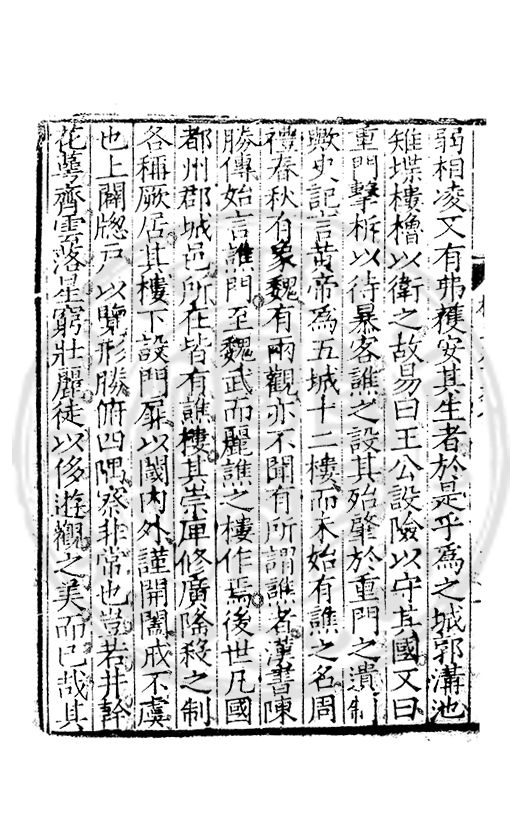 弱相凌又有弗獲安其生者於是乎為之城郭溝池
雉堞樓櫓以衛之故易曰王公設險以守其國又曰
重門擊柝以待暴客譙之設其殆肇於重門之遺制
歟史記言黃帝為五城十二樓而未始有譙之名周
禮春秋有象魏有兩觀亦不聞有所謂譙者漢書陳
勝傳始言譙門至魏武而麗譙之樓作焉後世凡國
都州郡城邑所在皆有譙樓其崇庳修廣隆殺之制
各稱厥居其樓下設門屏以閾內外謹開闔戒不虞
也上闢牕戶以覽形勝俯四隅察非常也豈若井幹
花萼齊雲落星窮壯麗徒以侈遊觀之美而已哉其